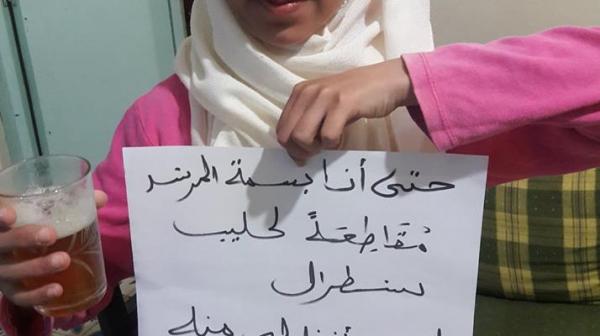 حتى أنا بسمة المرشد
مُقَاطِعَةً لحليب
سنطرال